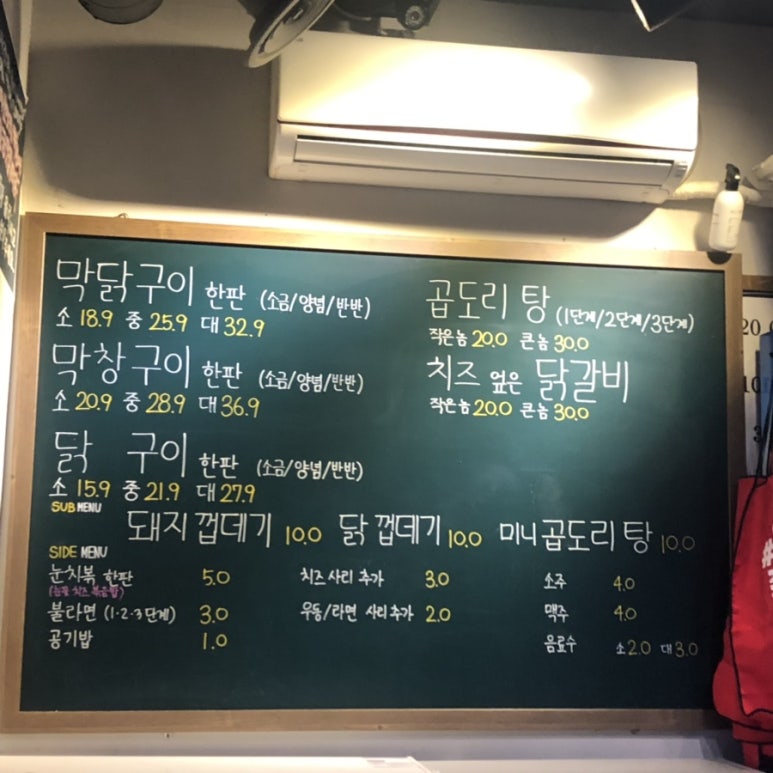 막닭구이 한판 (소금/양념/반반)
소 18.9 중 25.9 대 32.9
막창구이 한판 (소금/양념/반반)
소 20.9 중 28.9 대 36.9
닭 구이 한판 (소금/양념/반반)
소 15.9 중 21.9 대 27.9
곱도리탕 (1단계/2단계/3단계)
작은놈 20.0 큰놈 30.0
치즈 얹은 닭갈비
작은놈 20.0 큰놈 30.0
SUB MENU
돼지껍데기 10.0 닭껍데기 10.0 미니곱도리탕 10.0
SIDE MENU
눈치볶 한판 5.0
치즈 볶음밥)
불라면 (1·2·3단계) 3.0
공기밥 1.0
치즈사리 추가 3.0
우동/라면 사리추가 2.0
소주 4.0
맥주 4.0
음료수 소 2.0 대 3.0